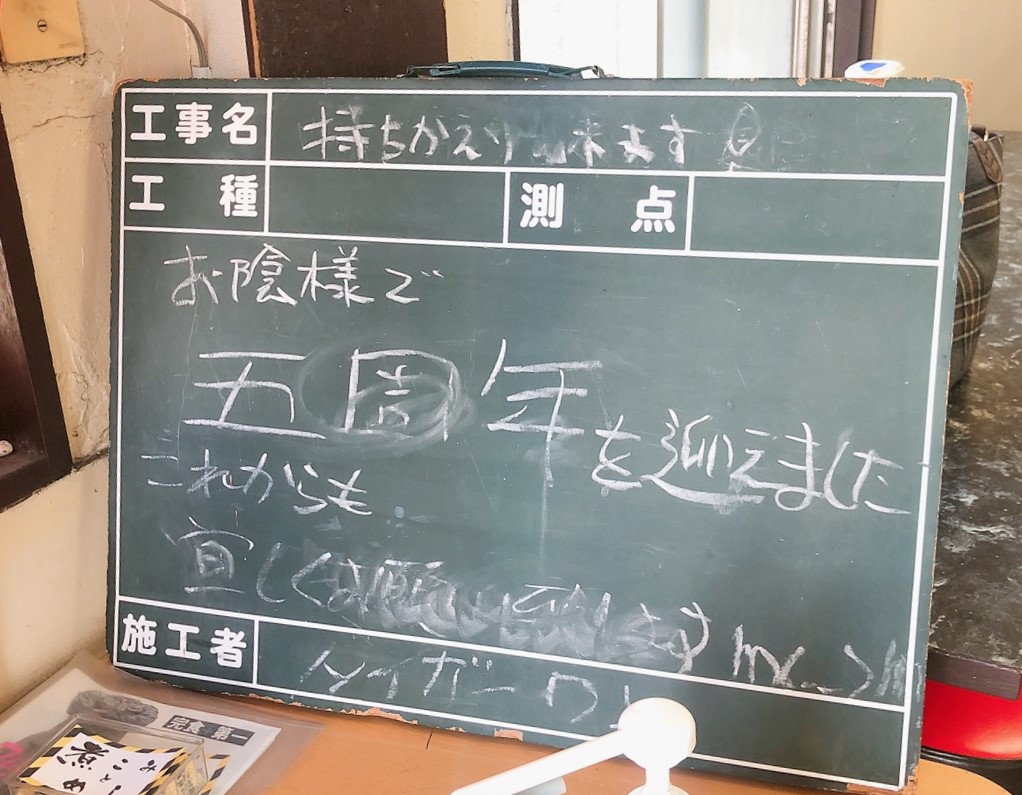 工事名 持ちかえり 出来ます
工種 測点
お陰様で
五周年を迎えました
これからも
宜しくお願い致します m(_ _)m
施工者
完食 第一
煮こみ